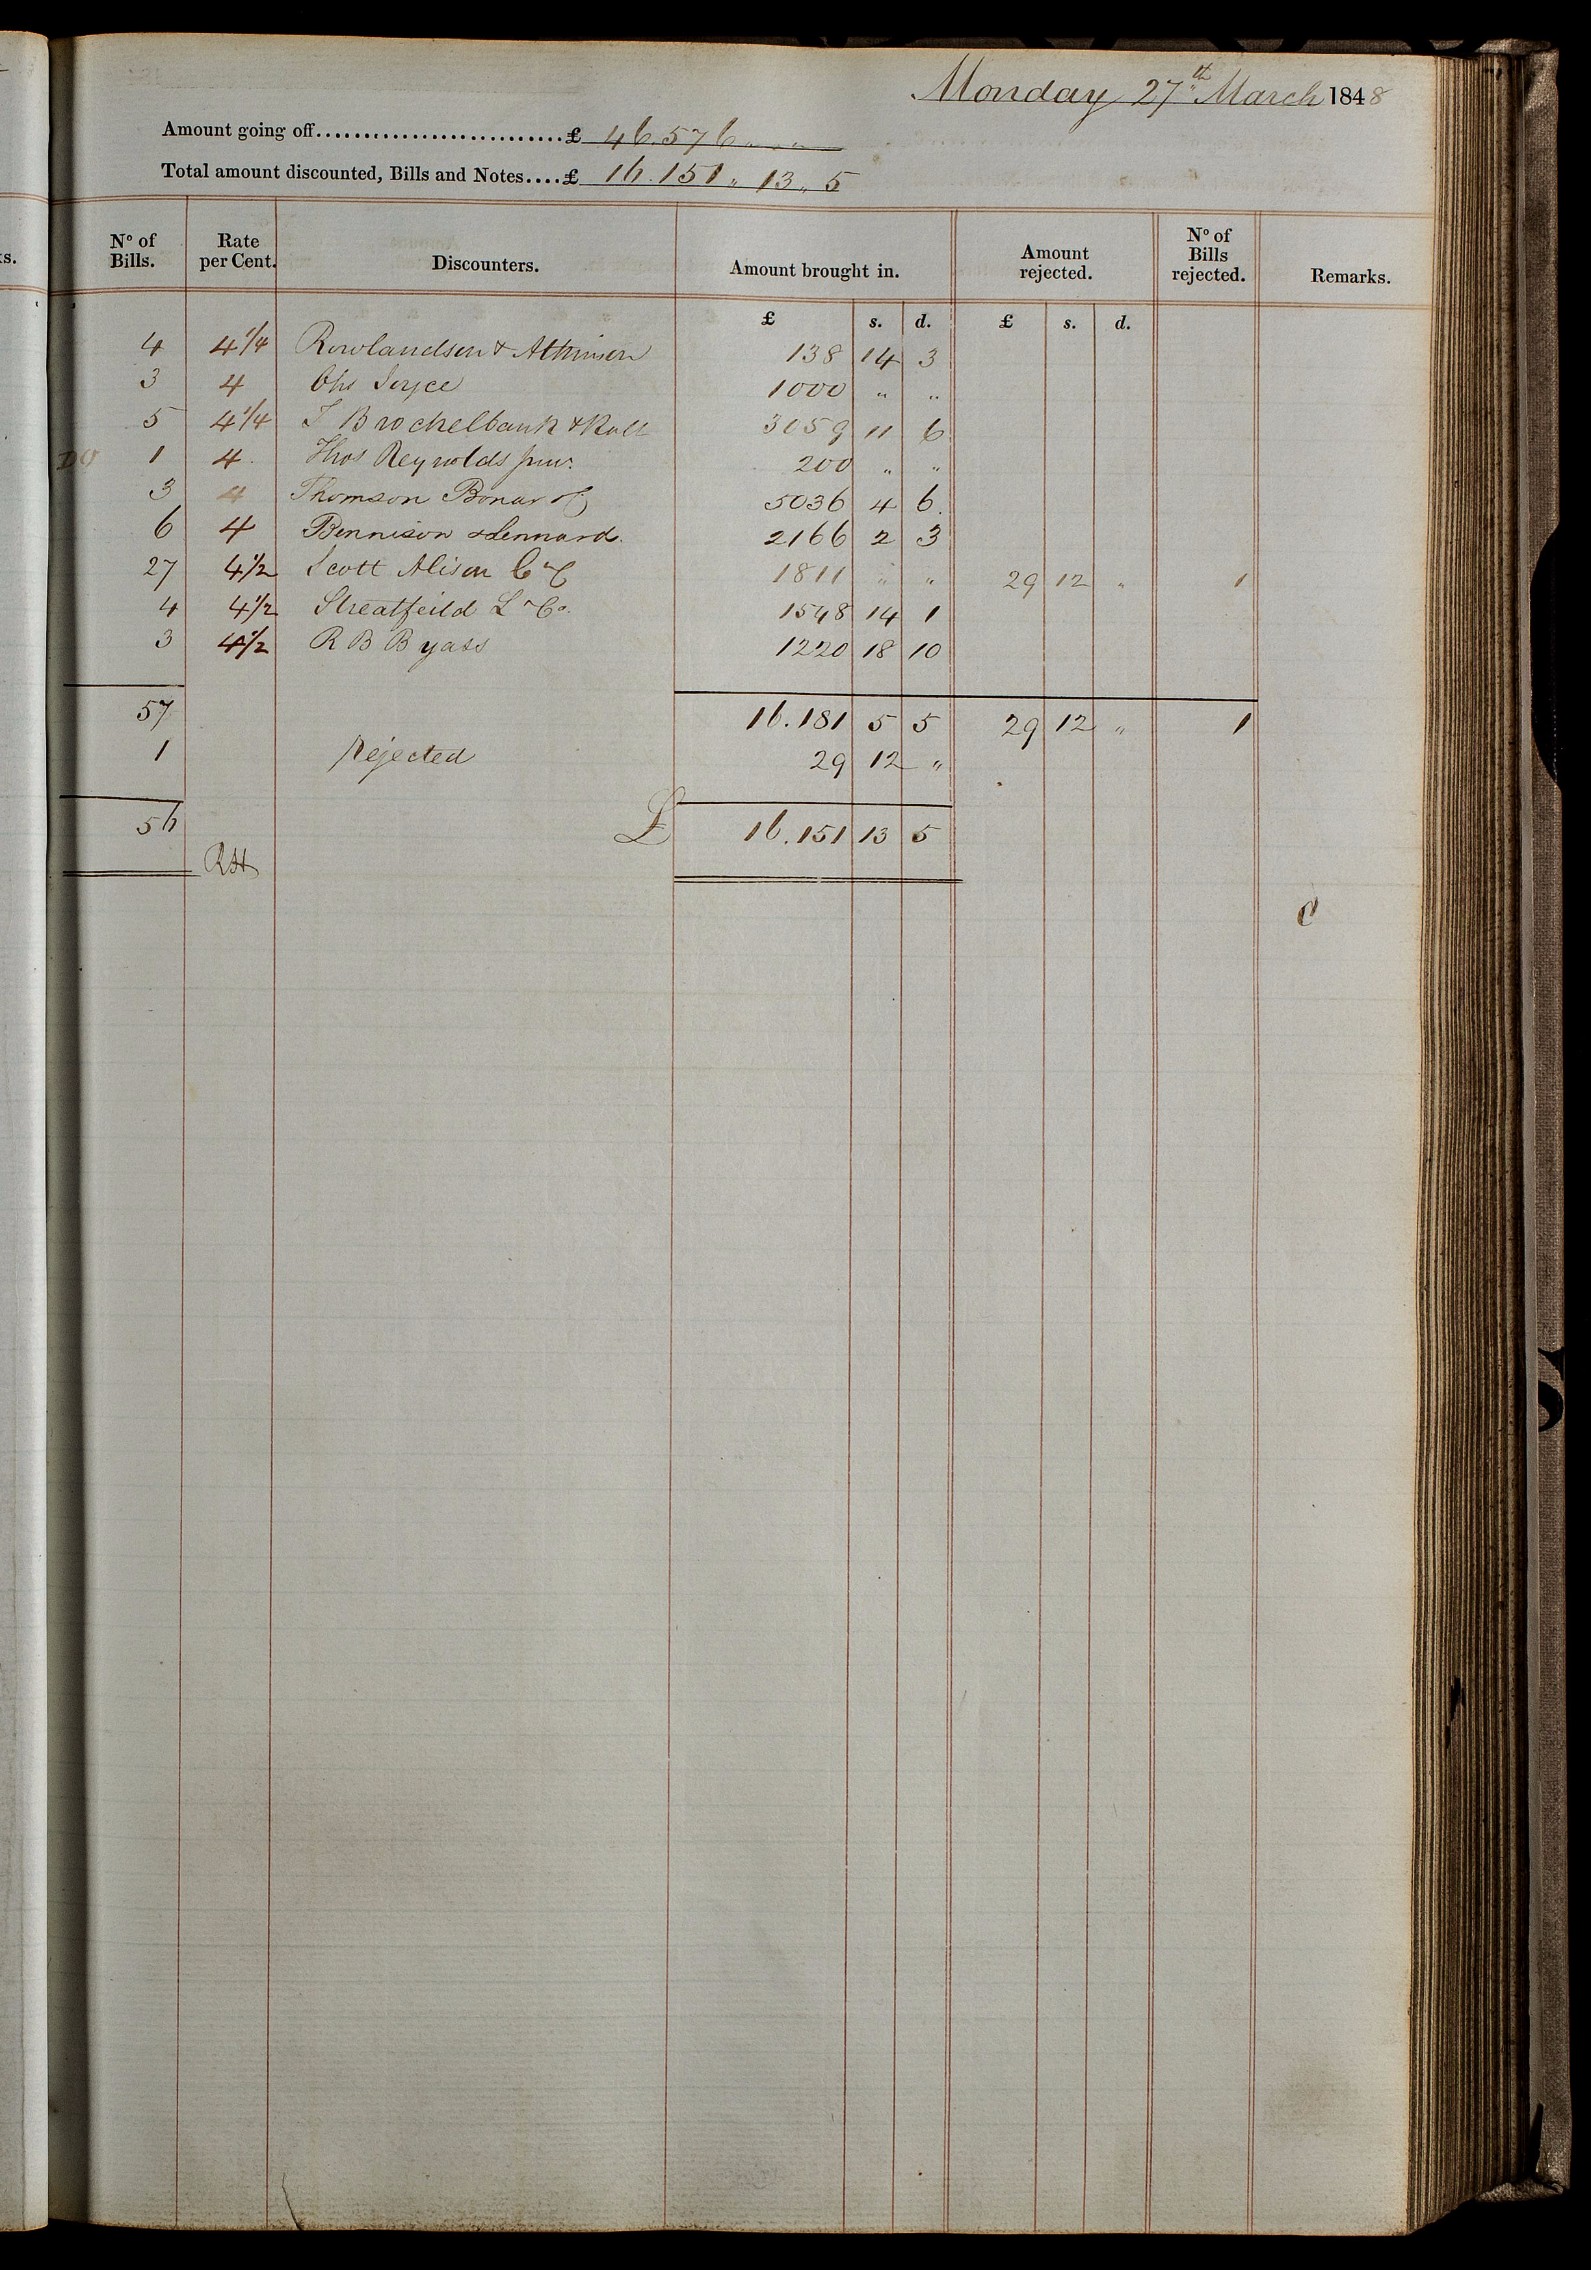 Monday 27th March 1848
Amount going off..........................£ 46.576 " "
Total amount discounted, Bills and Notes....£ 16.151 " 13 " 5
No of Bills. Rate per Cent. Discounters. Amount brought in. Amount rejected. No of Bills rejected. Remarks.
£ s. d. £ s. d.
4 4 1/4 Rowlandson & Atkinson 138 14 3
3 4 Chs Joyce 1000 " "
5 4 1/4 T Brockelbank & Rolt 3059 11 6
1 4 Thos Reynolds junr. 200 " "
3 4 Thomson Bonar & C 5036 4 6
6 4 Bennison & Lennard. 2166 2 3
27 4 1/2 Scott Alison C & C 1811 " " 29 12 " 1
4 4 1/2 Streatfeild L & Co. 1548 14 1
3 4 1/2 R B Byass 1220 18 10
57 16.181 5 5 29 12 " 1
1 Rejected 29 12 "
56 £ 16.151 13 5
RH
C